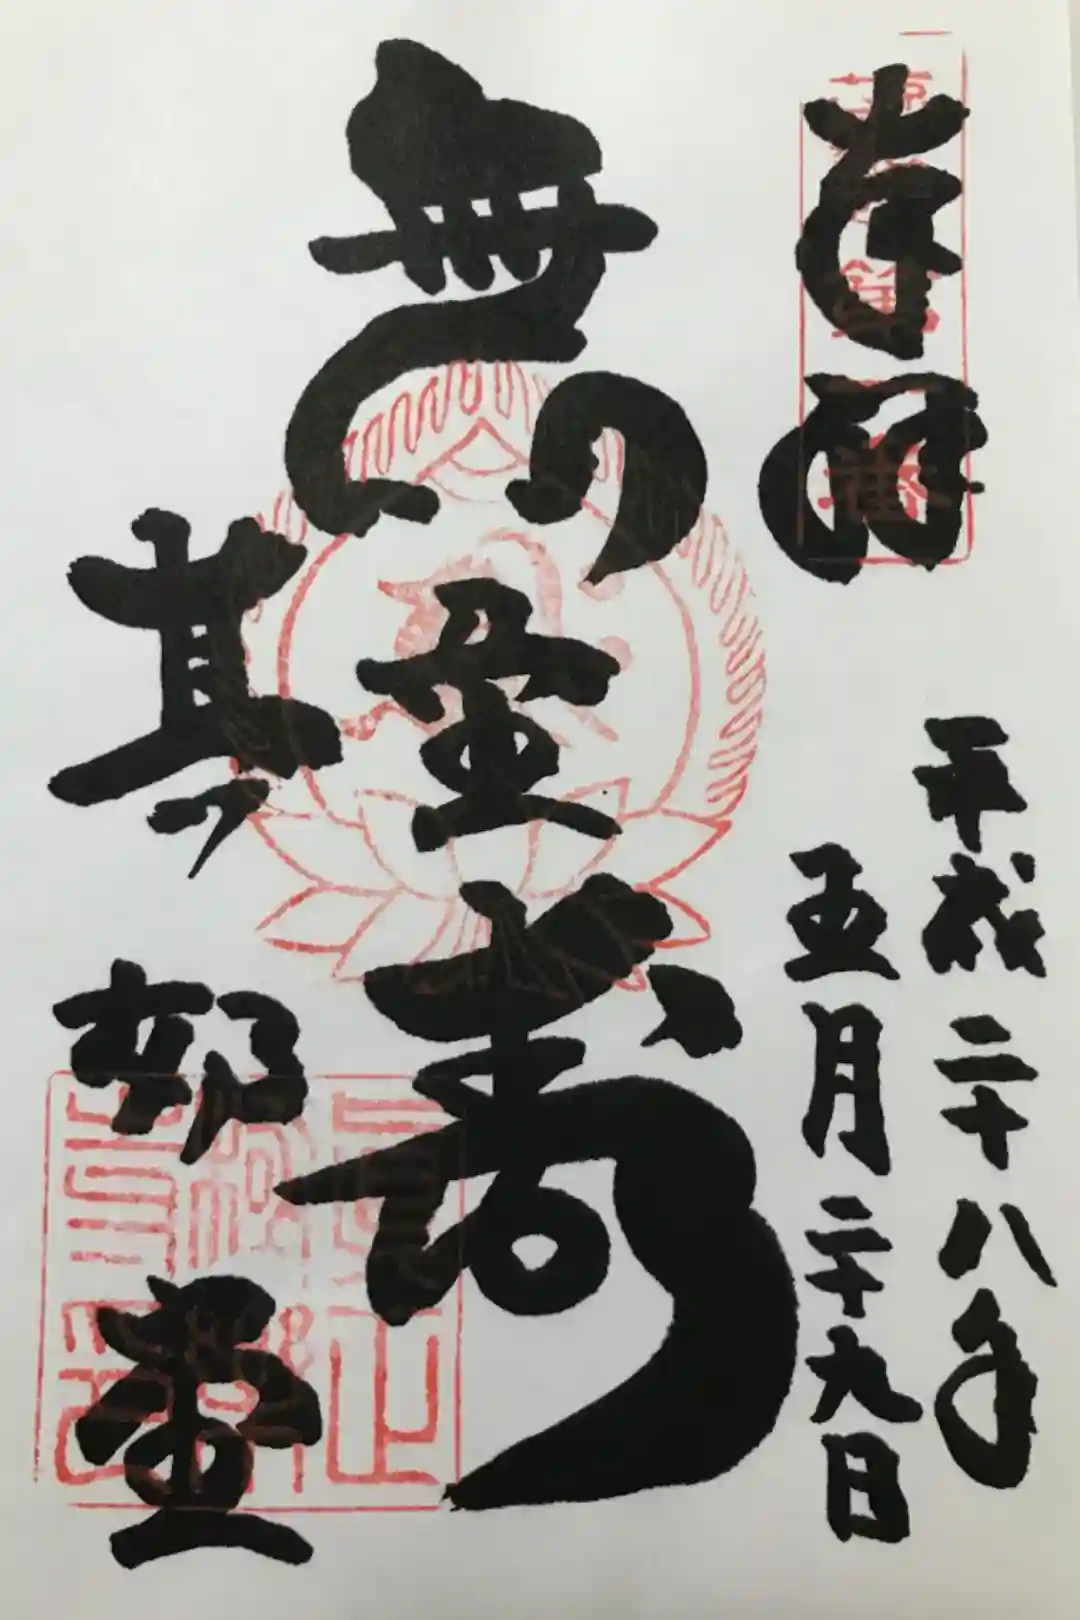 奉拝
平成二十八年
五月二十九日
無量壽
真如堂